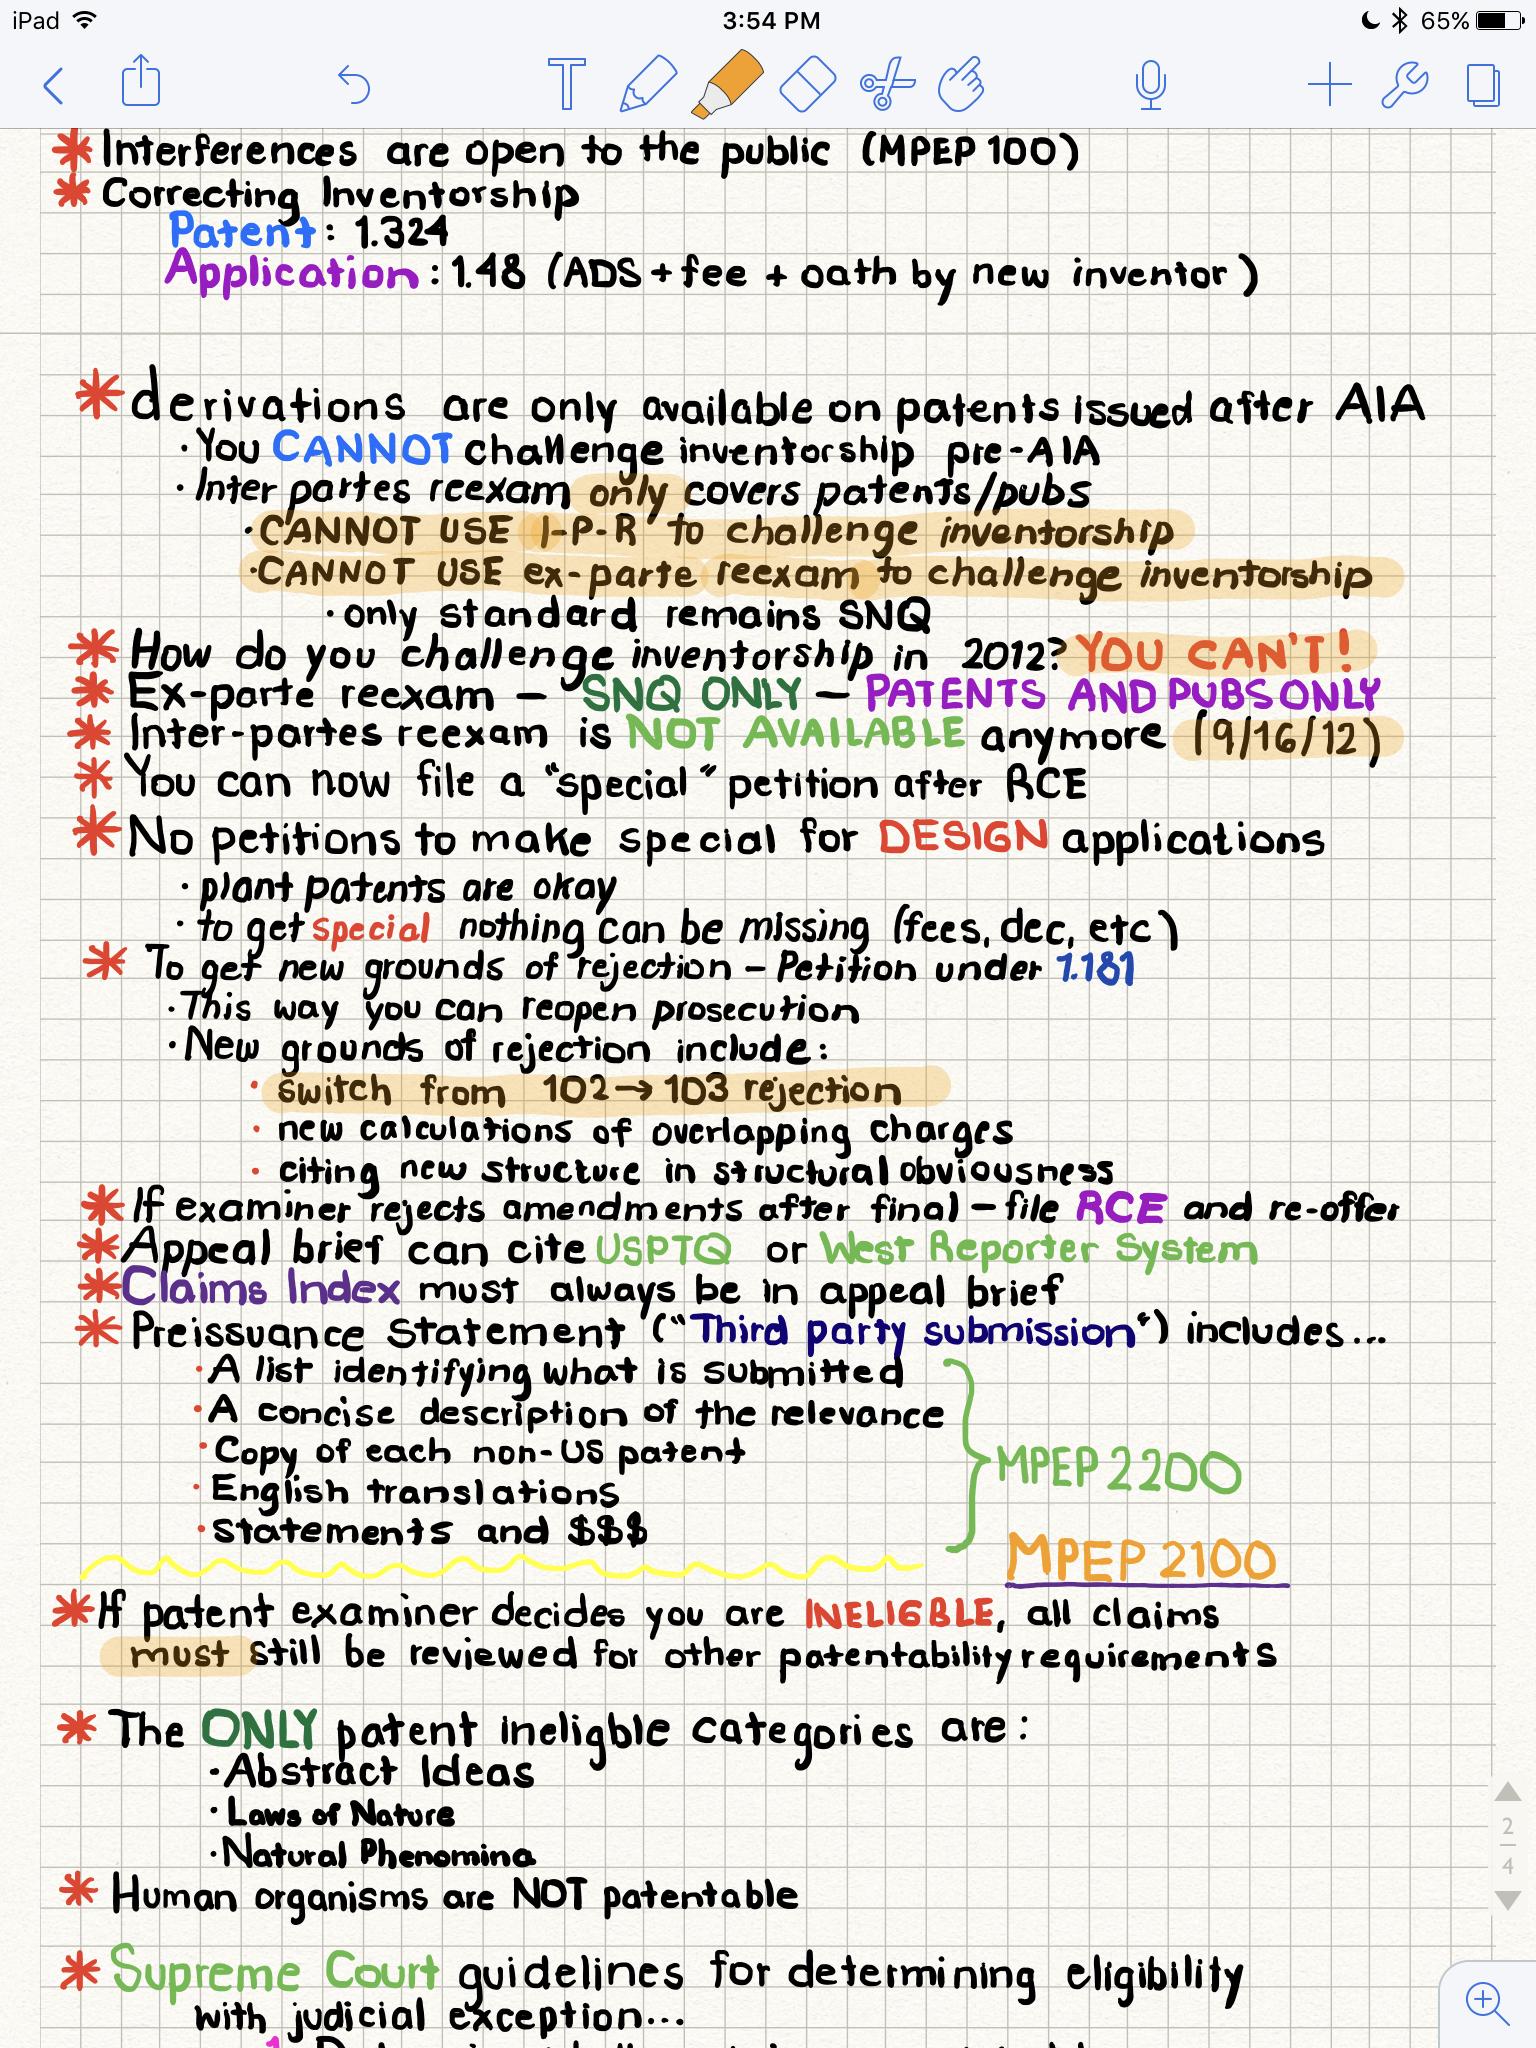 iPad 3:54 PM 65%
T
* Interferences are open to the public (MPEP 100)
* Correcting Inventorship
Patent: 1.324
Application: 1.48 (ADS + fee + oath by new inventor)
* derivations are only available on patents issued after AIA
· You CANNOT challenge inventorship pre-AIA
· Inter partes reexam only covers patents/pubs
· CANNOT USE I-P-R to challenge inventorship
· CANNOT USE ex-parte reexam to challenge inventorship
· only standard remains SNQ
* How do you challenge inventorship in 2012? YOU CAN'T!
* Ex-parte reexam — SNQ ONLY — PATENTS AND PUBS ONLY
* Inter-partes reexam is NOT AVAILABLE anymore (9/16/12)
* You can now file a "special" petition after RCE
* No petitions to make special for DESIGN applications
· plant patents are okay
· to get special nothing can be missing (fees, dec, etc)
* To get new grounds of rejection – Petition under 1.181
· This way you can reopen prosecution
· New grounds of rejection include:
· switch from 102 → 103 rejection
· new calculations of overlapping charges
· citing new structure in structural obviousness
* If examiner rejects amendments after final – file RCE and re-offer
* Appeal brief can cite USPTQ or West Reporter System
* Claims Index must always be in appeal brief
* Preissuance Statement ("Third party submission") includes...
· A list identifying what is submitted
· A concise description of the relevance
· Copy of each non-US patent
· English translations
· statements and $$$
MPEP 2200
MPEP 2100
* If patent examiner decides you are INELIGBLE, all claims
must still be reviewed for other patentability requirements
* The ONLY patent ineligble categories are:
· Abstract Ideas
· Laws of Nature
· Natural Phenomina
* Human organisms are NOT patentable
* Supreme Court guidelines for determining eligibility
with judicial exception...
2
4